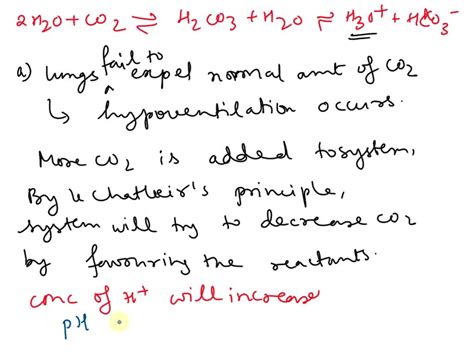 2H2O + CO2 ⇌ H2CO3 + H2O ⇌ H3O+ + HCO3-
a) lungs fail to expel normal amt of CO2
↳ hypoventilation occurs.
More CO2 is added to system,
By le Chatleir's principle,
system will try to decrease CO2
by favouring the reactants.
conc of H+ will increase
pH